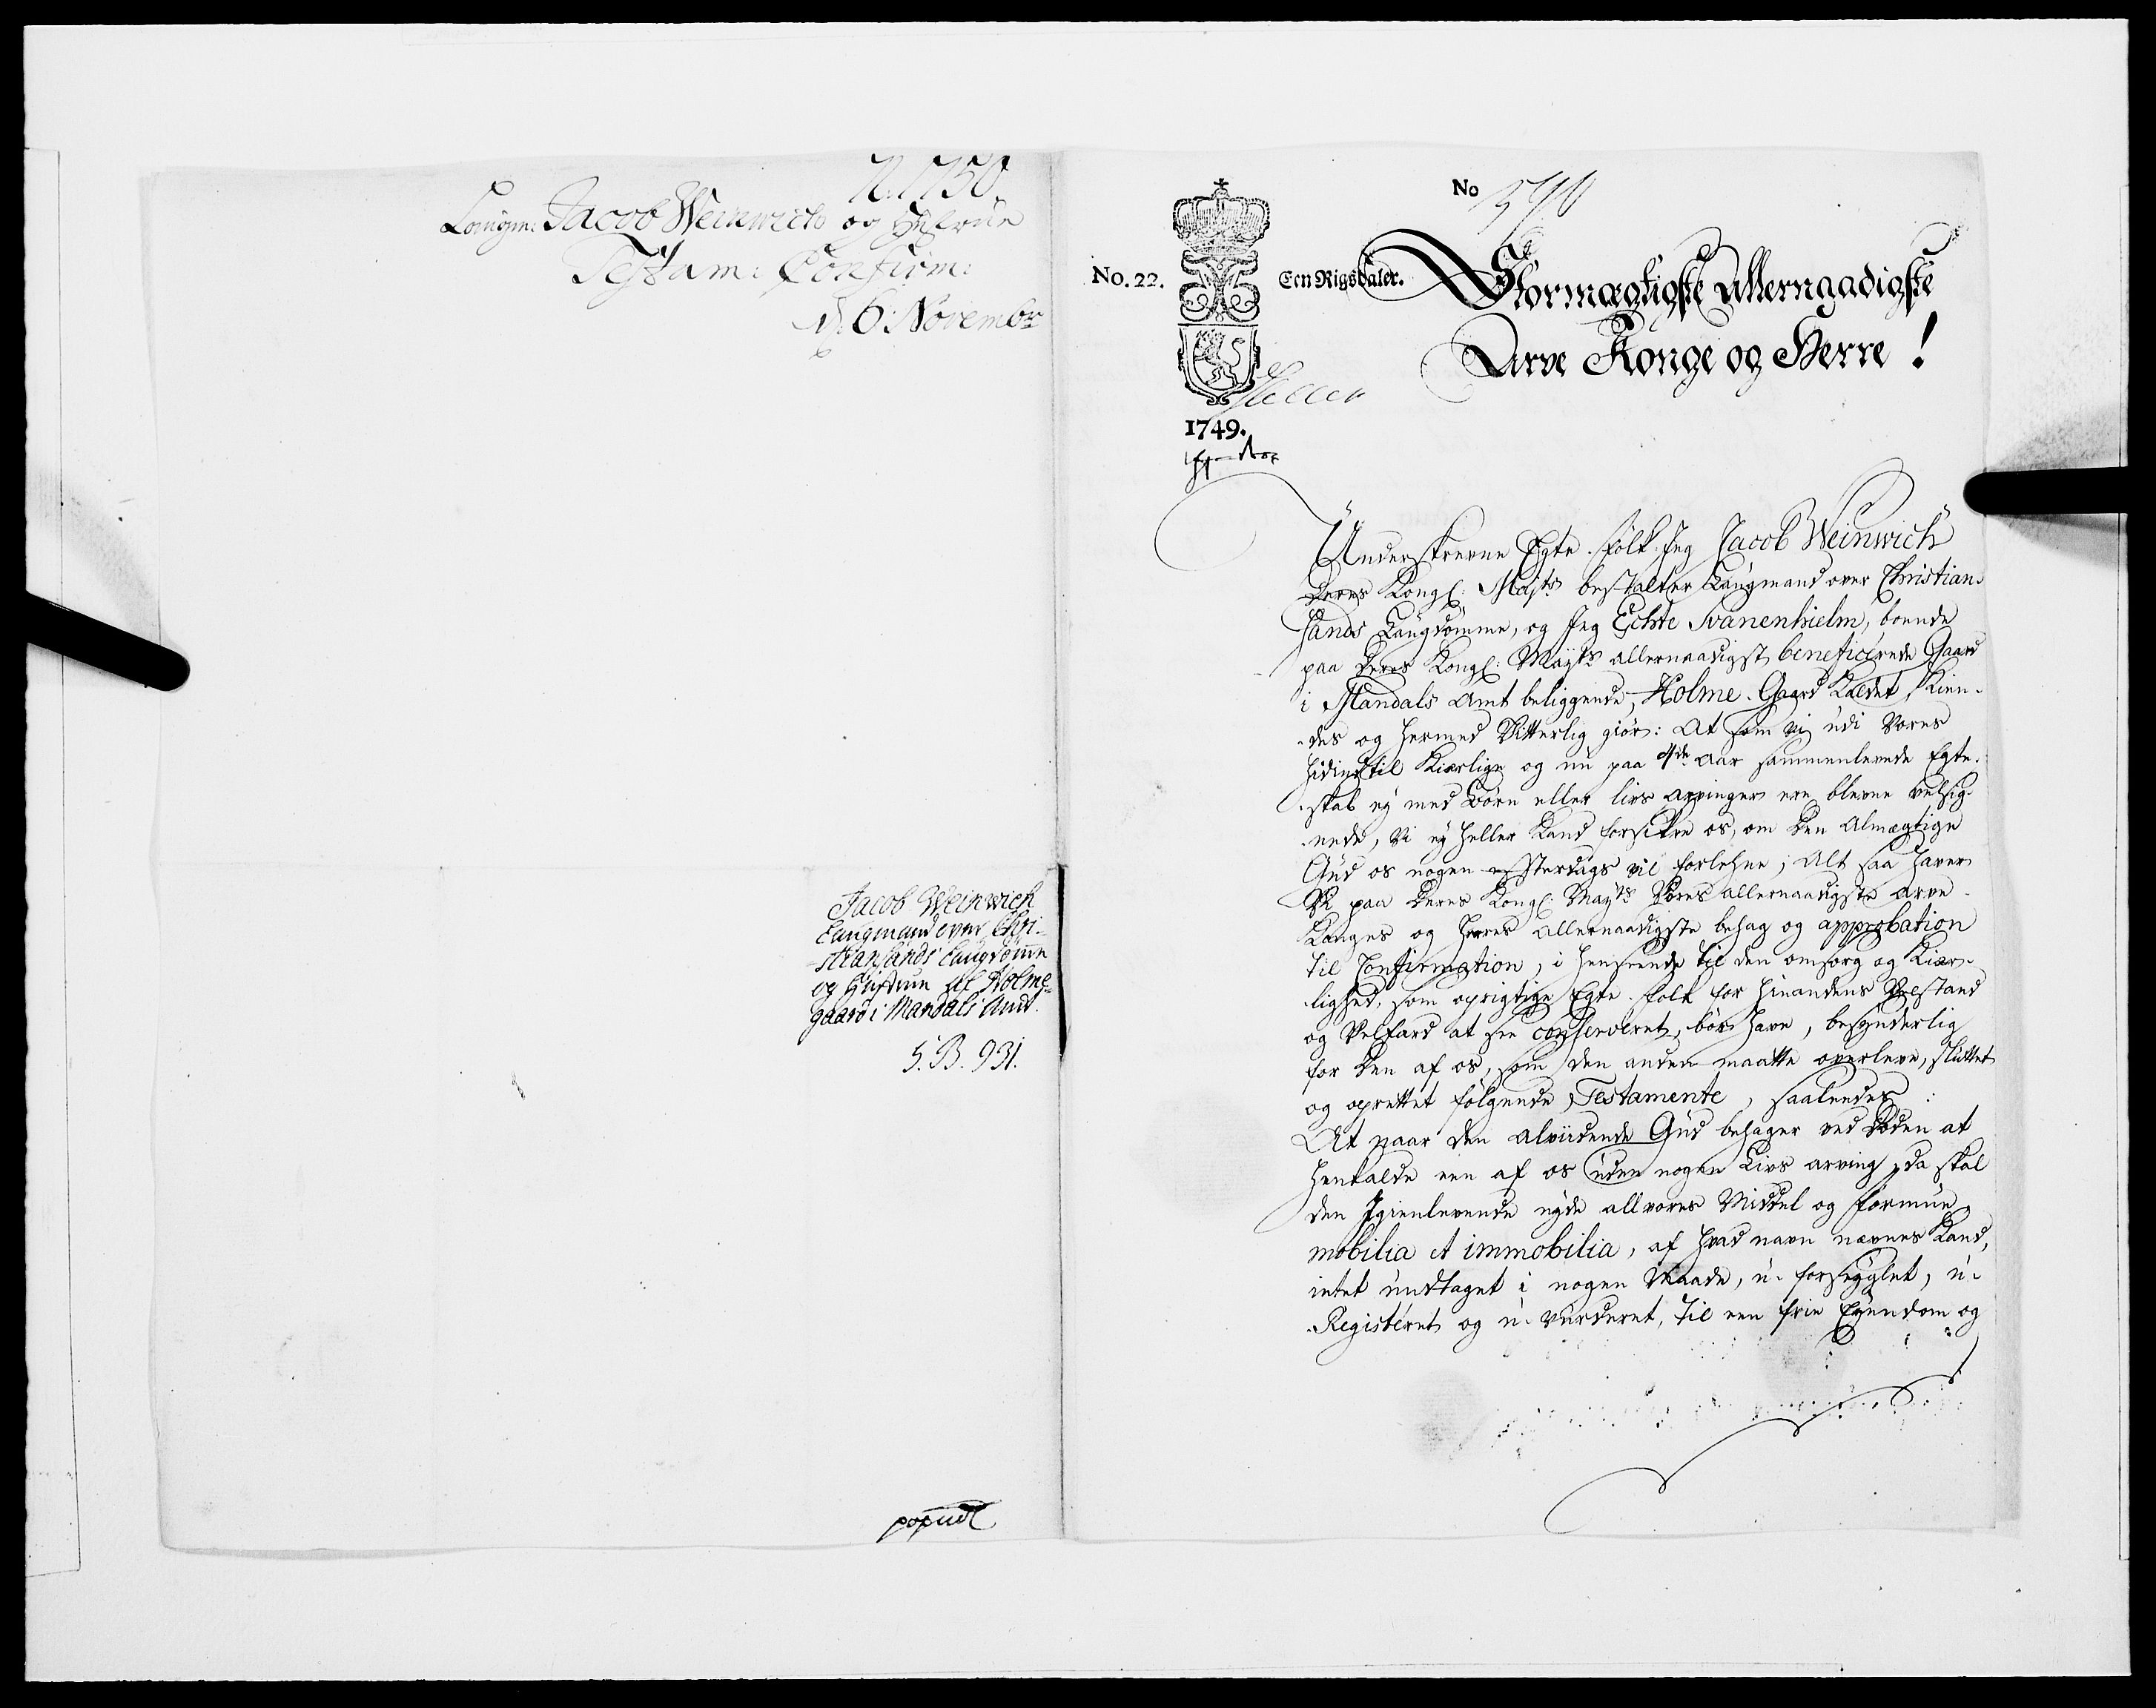 N. 1750.
Laugm: Jacob Weinwich og Hustrue
Testam: Confirm:
d. 6. Novembr
Jacob Weinwich
Laugmand over Chri-
-stiansands Laugdømme
og Hustrue til Holme-
gaard i Mandals Amt.
S. B. 931.
No 590
No. 22.
Een Rigsdaler.
1749.
Stormægtigste Allernaadigste
Arve Konge og Herre!
Underskrevne Egte-folk Jeg Jacob Weinwich
Deres Kongl: Majts bestalter Laugmand over Christian-
sands Laugdømme, og Jeg Echte Svanenhielm, boende
paa Deres Kongl: Mayts allernaadigst beneficerede Gaard
i Mandals Amt beliggende, Holme-Gaard kaldet, Kien-
-des og hermed Vitterlig giør: At som vi udi Vores
hidindtil Kierlige og nu paa 4de Aar sammenlevede Egte-
-skab ey med Børn eller livs arvinger ere blevne velsig-
-nede, Vi ey heller Kand forsikre os, om Den Almægtige
Gud os nogen efterdags vil forlehne; Alt saa haver
Vi paa Deres Kongl: Mayts Vores allernaadigste Arve
Konges og Herres allernaadigste behag og approbation
til Confirmation, i henseende til den omsorg og Kier-
-lighed, som oprigtige Egte-folk for hinandens Velstand
og Velfard at see conserveret, bør have, besynderlig
for Den af os, som den anden maatte overleve, sluttet
og oprettet følgende Testamente, saaledes:
At naar den alviidende Gud behager ved Døden at
henkalde een af os uden nogen Livs arving, da skal
den Igienlevende nyde all vores Middel og formue
mobilia et immobilia, af hvad navn nævnes Kand,
intet undtaget i nogen Maade, u-forseyglet, u-
Registeret og u-vurderet, til een frie Eyendom og